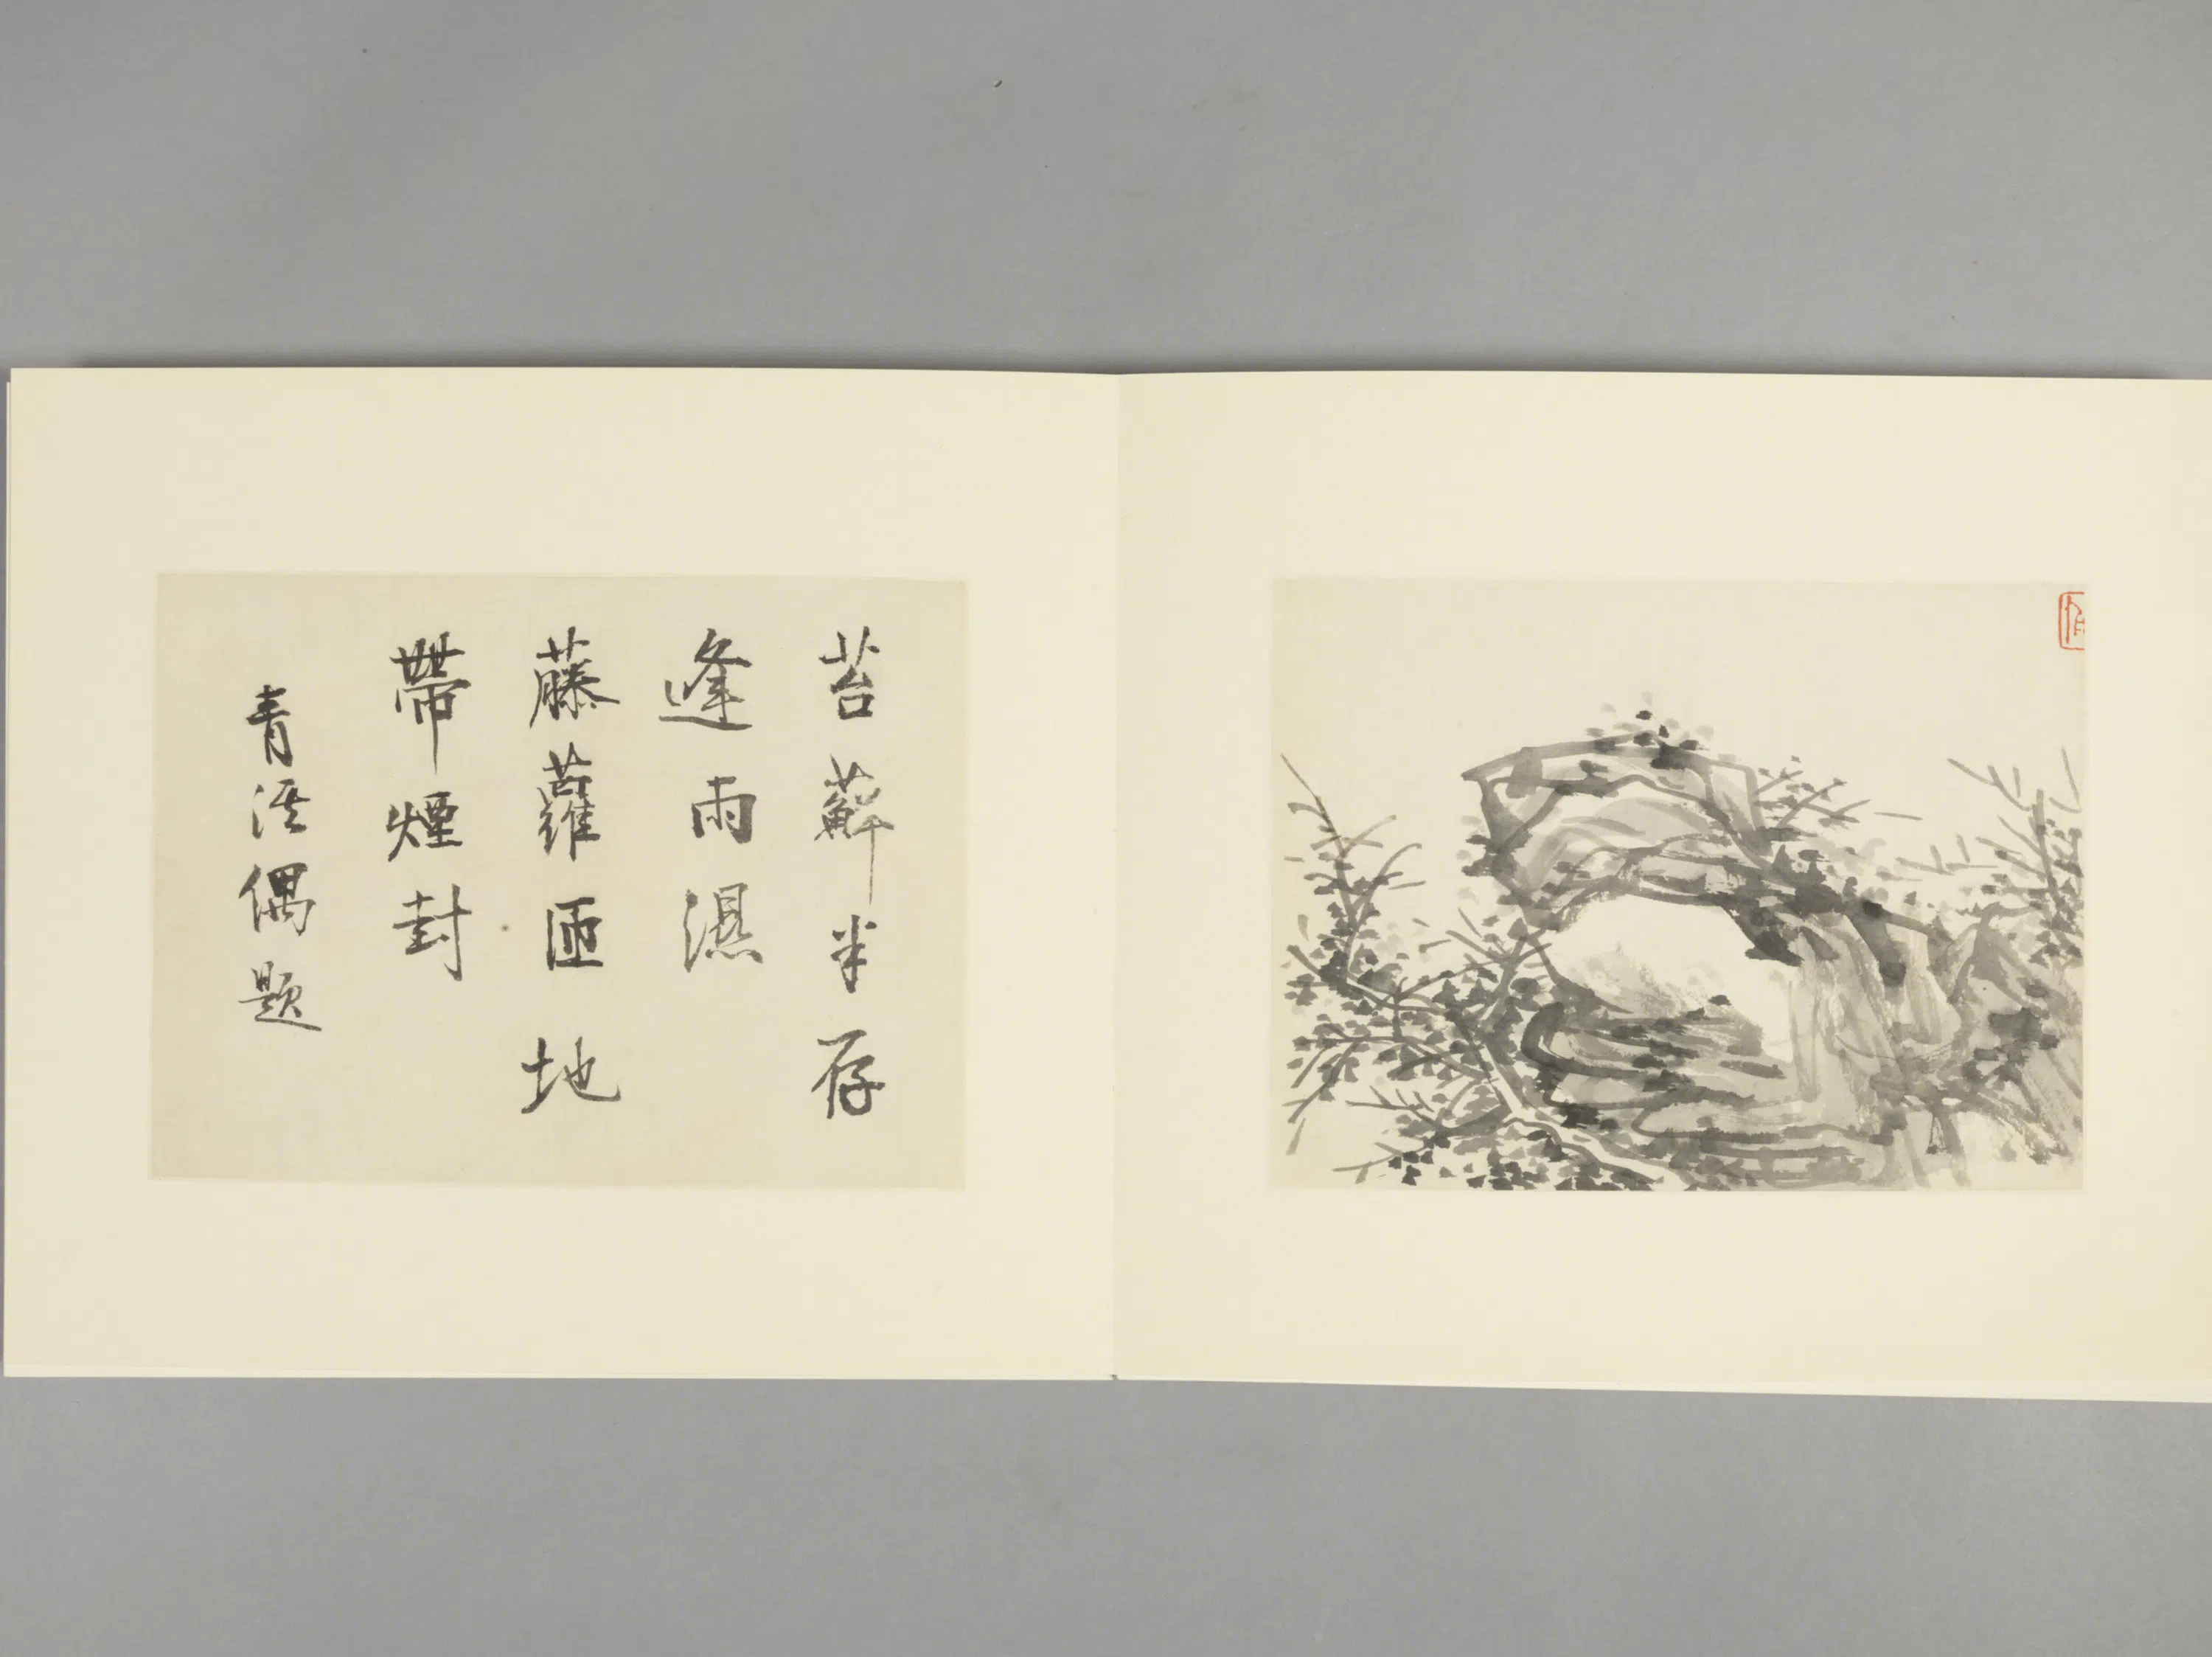 苔蘚半存
逢雨濕
藤蘿匝地
帶煙封
青溪偶題